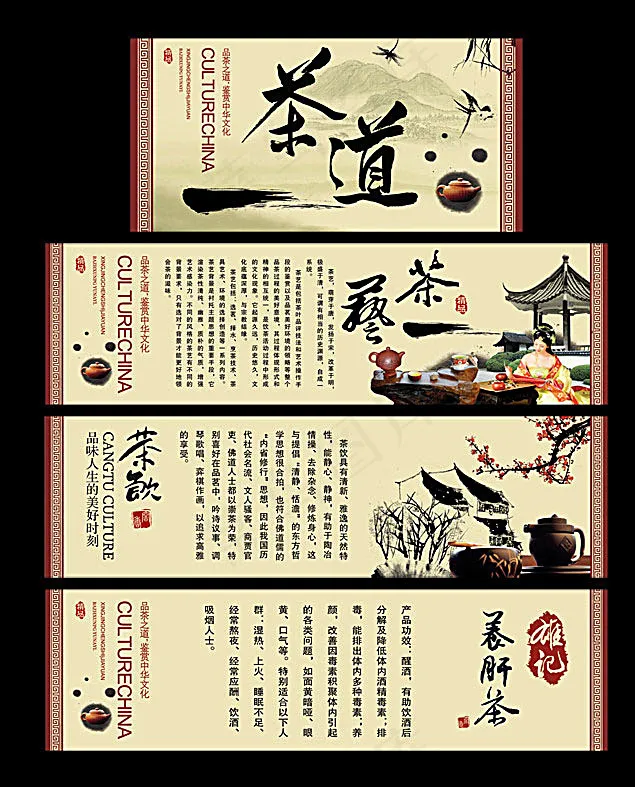 茶道
品茶之道,鉴赏中华文化
CULTURECHINA
XINGJINGCHENGSHIJIAYUAN
茶艺
茶艺,萌芽于唐,发扬于宋,改革于明,
极盛于清,可谓有相当的历史渊源,自成一
系统。
茶艺是包括茶叶品评技法和艺术操作手
段的鉴赏以及品茗美好环境的领略等整个
品茶过程的美好意境,其过程体现形式和
精神的相互统一,是饮茶活动过程中形成
的文化现象。它起源久远,历史悠久,文
化底蕴深厚,与宗教结缘。
茶艺包括:选茗、择水、烹茶技术、茶
具艺术、环境的选择创造等一系列内容。
茶艺背景是衬托主题思想的重要手段,它
渲染茶性清纯、幽雅、质朴的气质,增强
艺术感染力。不同的风格的茶艺有不同的
背景要求,只有选对了背景才能更好地领
会茶的滋味。
品茶之道,鉴赏中华文化
CULTURECHINA
XINGJINGCHENGSHIJIAYUAN
茶饮具有清新、雅逸的天然特
性,能静心、静神,有助于陶冶
情操、去除杂念、修炼身心,这
与提倡“清静、恬澹”的东方哲
学思想很合拍,也符合佛道儒的
“内省修行”思想,因此我国历
代社会名流、文人骚客、商贾官
吏、佛道人士都以崇茶为荣,特
别喜好在品茗中,吟诗议事、调
琴歌唱、弈棋作画,以追求高雅
的享受。
茶饮
CANGTU CULTURE
品味人生的美好时刻
雄记
养肝茶
产品功效:醒酒,有助饮酒后
分解及降低体内酒精毒素;排
毒,能排出体内多种毒素;养
颜,改善因毒素积聚体内引起
的各类问题,如面黄暗哑、眼
黄、口气等。特别适合以下人
群:湿热、上火、睡眠不足、
经常熬夜、经常应酬、饮酒、
吸烟人士。
品茶之道,鉴赏中华文化
CULTURECHINA
XINGJINGCHENGSHIJIAYUAN